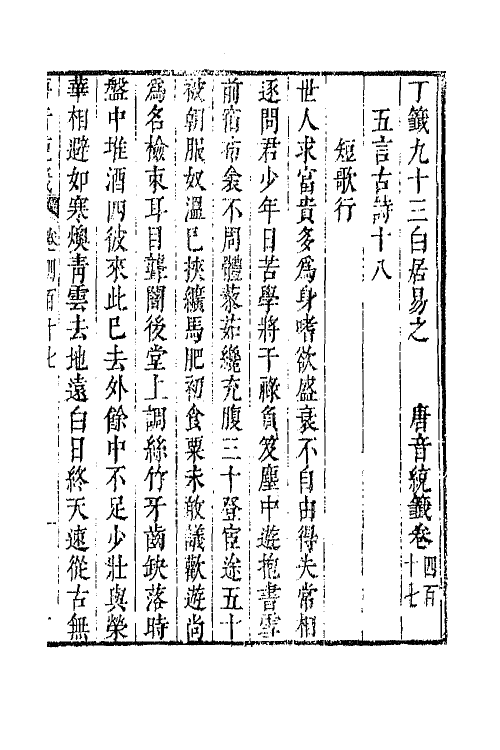 丁籖九十三白居易之　　唐音統籖卷四百十七
五言古詩十八
短歌行
世人求富貴多爲身嗜欲盛衰不自由得失常相
逐問君少年日苦學將干祿負笈塵中遊抱書雪
前宿布衾不周體藜茹纔充腹三十登宦途五十
被朝服奴溫已挾纊馬肥初食粟未敢議歡遊尚
爲名檢束耳目聾闇後堂上調絲竹牙齒缺落時
盤中堆酒肉彼來此已去外餘中不足少壯與榮
華相避如寒燠青雲去地遠白日終天速從古無
卷四百十七